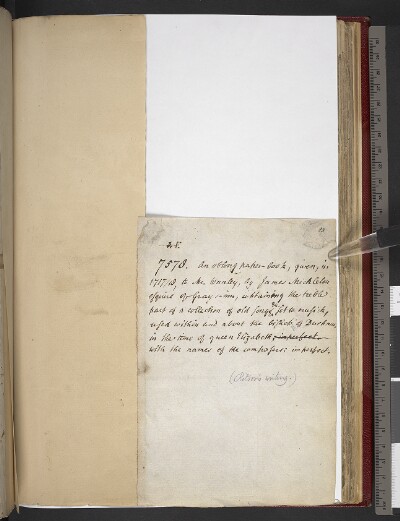 7578. An oblong paper-book, given, in
1717/18, to Mr. Wanley, by James Mickleton
esquire of Gray's-inn, containing the treble
part of a collection of old songs set to musick,
used within and about the bishop. of Durham
in the time of queen Elizabeth imperfect
with the names of the composers: imperfect.
(Ritson's writing.)